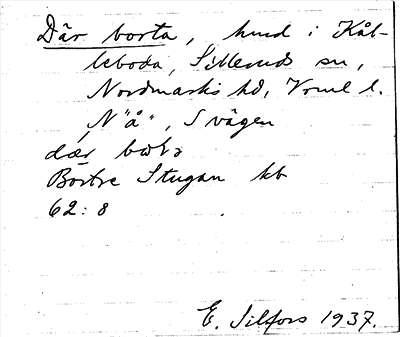 Där borta, hund i Kål-
leboda, Sillerud sn,
Nordmarks hd, Vrml l.
N "å", S vägen
där bo̅tə
Bortre Stugan kb
62:8
E. Silfors 1937.